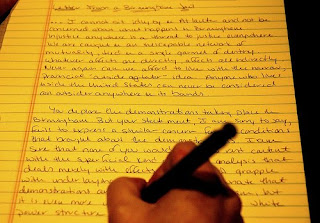 Letter From a Birmingham Jail
... I cannot sit idly by in Atlanta and not be
concerned about what happens in Birmingham.
Injustice anywhere is a threat to justice everywhere.
We are caught in an inescapable network of
mutuality, tied in a single garment of destiny.
Whatever affects one directly, affects all indirectly.
Never again can we afford to live with the narrow,
provincial "outside agitator" idea. Anyone who lives
inside the United States can never be considered
an outsider anywhere in its bounds.
You deplore the demonstrations taking place in
Birmingham. But your statement, I am sorry to say,
fails to express a similar concern for the conditions
that brought about the demonstrations. I am
sure that none of you would want to rest content
with the superficial kind of analysis that
deals merely with effects grapple
with underlying that
demonstrations are but
it is even more white
power structure